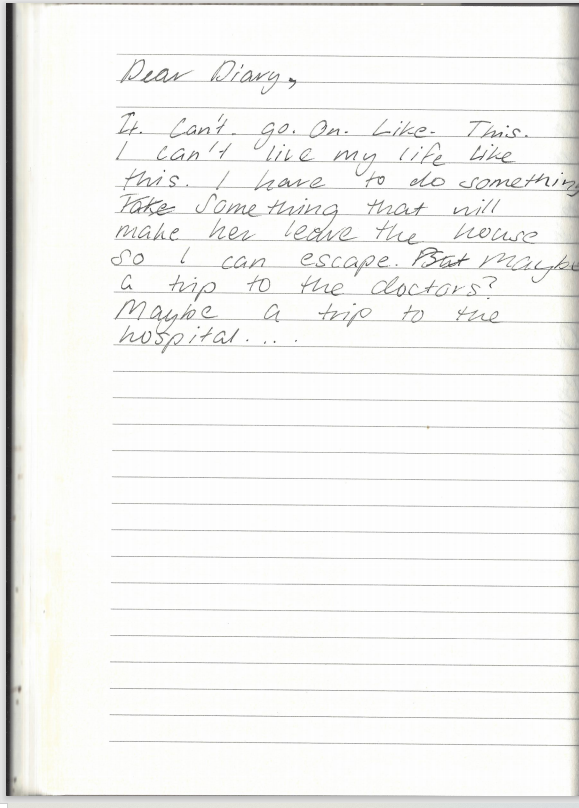 Dear Diary,
It. Can't. go. On. Like. This.
I can't live my life like
this. I have to do something
Take Something that will
make her leave the house
so I can escape. But Maybe
a trip to the doctors?
Maybe a trip to the
hospital....